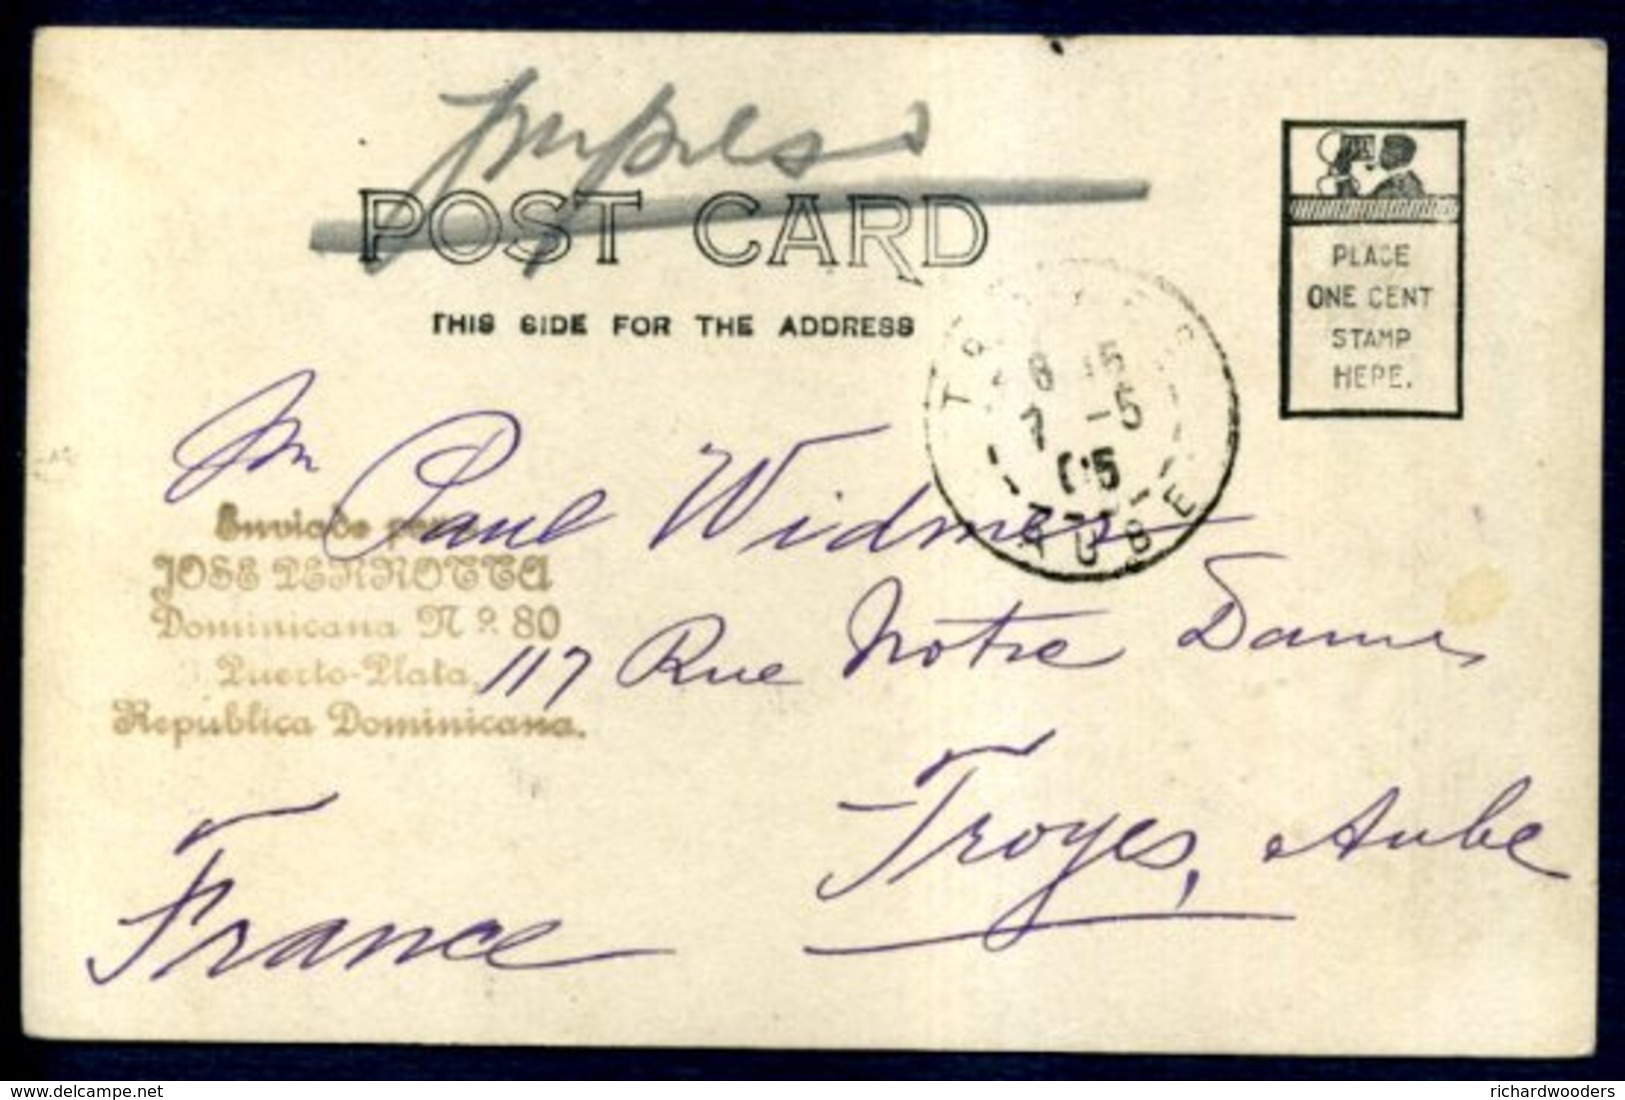 Impreso
POST CARD
THIS SIDE FOR THE ADDRESS
PLACE
ONE CENT
STAMP
HERE.
8 15
7 -5
05
AUBE
Mr Paul Widmer
Enviado por
JOSE PERROTTA
Dominicana Nº 80
Puerto-Plata,
Republica Dominicana.
117 Rue Notre Dame
Troyes, Aube
France
delcampe.net
richardwooders